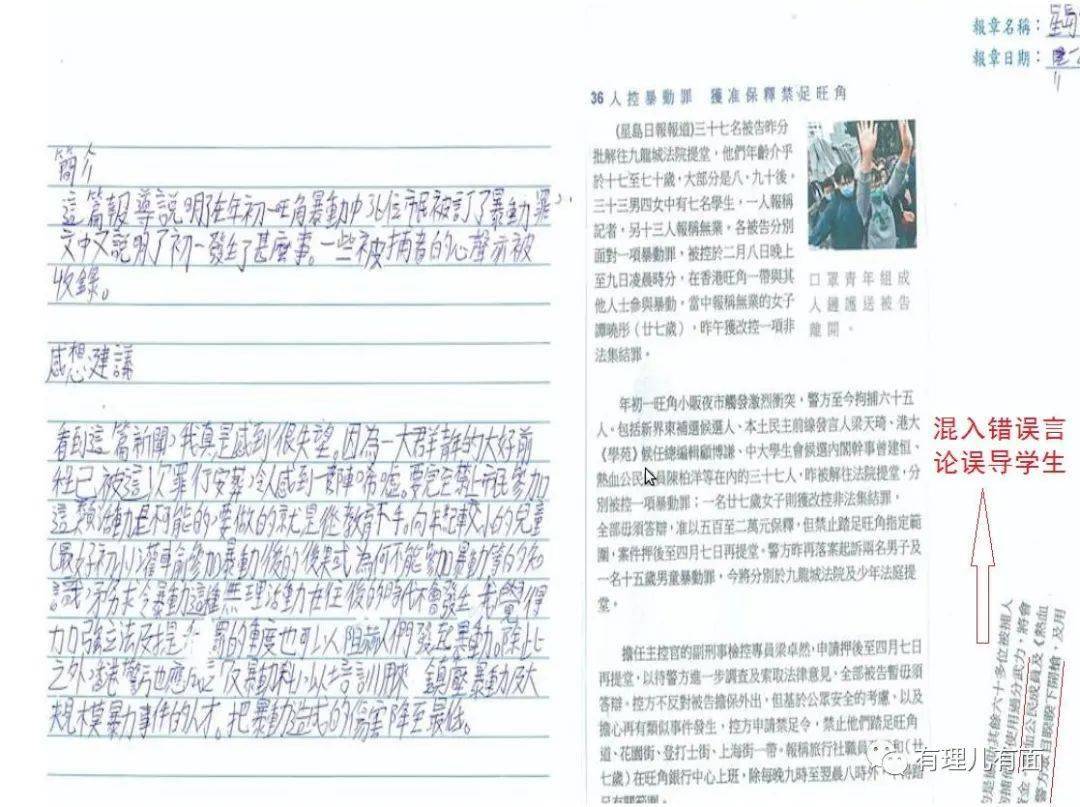 簡介
這篇報導說明了在年初一旺角暴動中36位市民被訂了暴動罪,
文中又說明了初一發生了甚麼事。一些被捕者的心聲亦被
收錄。
感想建議
看到這篇新聞,我真是感到很失望。因為一大群青年的大好前
程已被這次罪行安葬,令人感到一陣唏噓。要完全禁止市民參加
這類活動是不可能的,要做的就是從教育下手,向年紀較小的兒童
(最好初小)灌輸參加暴動後的後果或為何不能參加暴動等的知
識,務求令暴動這種無理活動在往後的時代不會發生。我覺得
加強立法 罰的重度也可以阻嚇人們發起暴動。除此
之外,警 也應 反暴動科,以培訓用來鎮壓暴動及大
規模暴力事件的人才。把暴動造成的傷害降至最低。
報章名稱：星島
報章日期：
36人控暴動罪 獲准保釋禁足旺角
(星島日報報道)三十七名被告昨分
批解往九龍城法院提堂，他們年齡介乎
於十七至七十歲，大部分是八、九十後，
三十三男四女中有七名學生，一人報稱
記者，另十三人報稱無業，各被告分別
面對一項暴動罪，被控於二月八日晚上
至九日凌晨時分，在香港旺角一帶與其
他人士參與暴動，當中報稱無業的女子
譚曉彤（廿七歲），昨午獲改控一項非
法集結罪。
口罩青年組成
人鏈護送被告
離開。
年初一旺角小販夜市觸發激烈衝突，警方至今拘捕六十五
人。包括新界東補選候選人、本土民主前線發言人梁天琦、港大
《學苑》候任總編輯顧博謙、中大學生會候選內閣幹事曾建恒、
熱血公民成員陳柏洋等在內的三十七人，昨被解往法院提堂，分
別被控一項暴動罪；一名廿七歲女子則獲改控非法集結罪，
全部毋須答辯，准以五百至二萬元保釋，但禁止踏足旺角指定範
圍，案件押後至四月七日再提堂。警方昨再落案起訴兩名男子及
一名十五歲男童暴動罪，今將分別於九龍城法院及少年法庭提
堂。
擔任主控官的副刑事檢控專員梁卓然，申請押後至四月七日
再提堂，以待警方進一步調查及索取法律意見，全部被告暫毋須
答辯。控方不反對被告擔保外出，但基於公眾安全的考慮，以及
擔心再有類似事件發生，控方申請禁足令，禁止他們踏足旺角
道、花園街、登打士街、上海街一帶。報稱旅行社職員 和（廿
七歲）在旺角銀行中心上班，除每晚九時至翌晨八時外，
足有關範圍。
混入错误言
论误导学生
其餘六十多位被捕人
使用過分武力，將會
公民成員及《熱血
下開槍，及用
有理儿有面